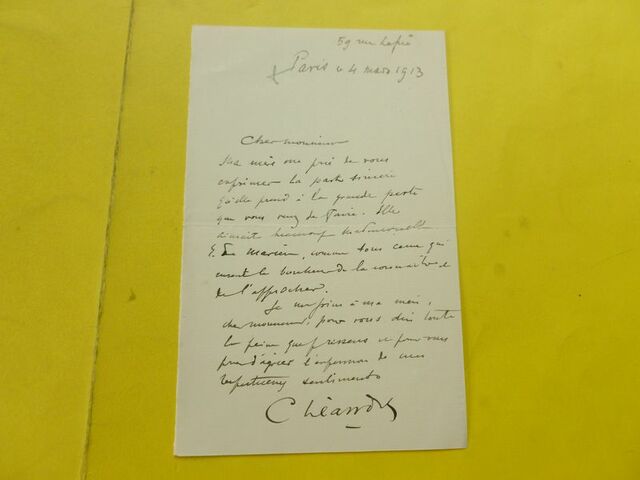 59 rue Lepic
Paris le 4 mars 1913
Cher monsieur
Ma mère me prie de vous
exprimer la part sincère
qu'elle prend à la grande perte
que vous venez de faire. Elle
aimait beaucoup Mademoiselle
comme tous ceux qui
eurent le bonheur de la connaître et
de l'approcher.
Je me joins à ma mère,
cher monsieur, pour vous dire toute
la peine que je ressens et pour vous
prier d'agréer l'expression de mes
respectueux sentiments
C Léandre